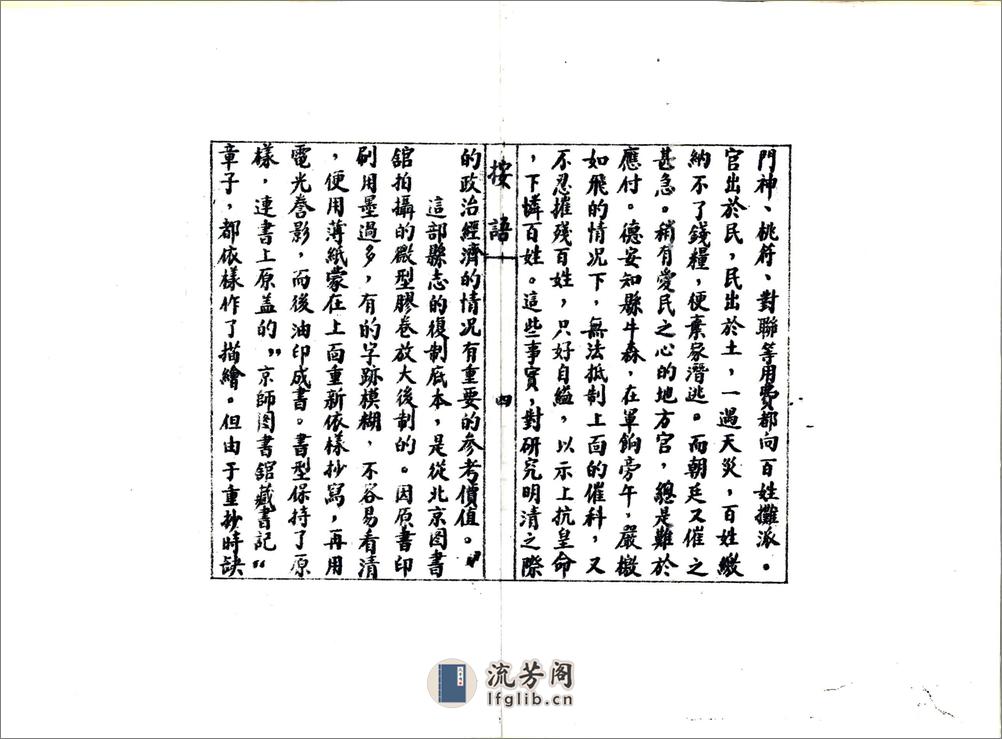 門神、桃符、對聯等用費都向百姓攤派。
官出於民，民出於土，一遇天災，百姓繳
納不了錢糧，便棄家潛逃。而朝廷又催之
甚急。稍有愛民之心的地方官，總是難於
應付。德安知縣牛森，在軍餉旁午，嚴檄
如飛的情况下，無法抵制上面的催科，又
不忍摧残百姓，只好自縊，以示上抗皇命
，下憐百姓。這些事實，對研究明清之際
按語
四
的政治經濟的情况有重要的参考價值。
這部縣志的復制底本，是從北京图書
舘拍攝的微型膠卷放大後制的。因原書印
刷用墨過多，有的字跡模糊，不容易看清
，便用薄紙蒙在上面重新依樣抄寫，再用
電光謄影，而後油印成書。書型保持了原
樣，連書上原盖的〃京師图書舘藏書記〃
章子，都依樣作了描繪。但由于重抄時缺
流芳阁
lfglib.cn